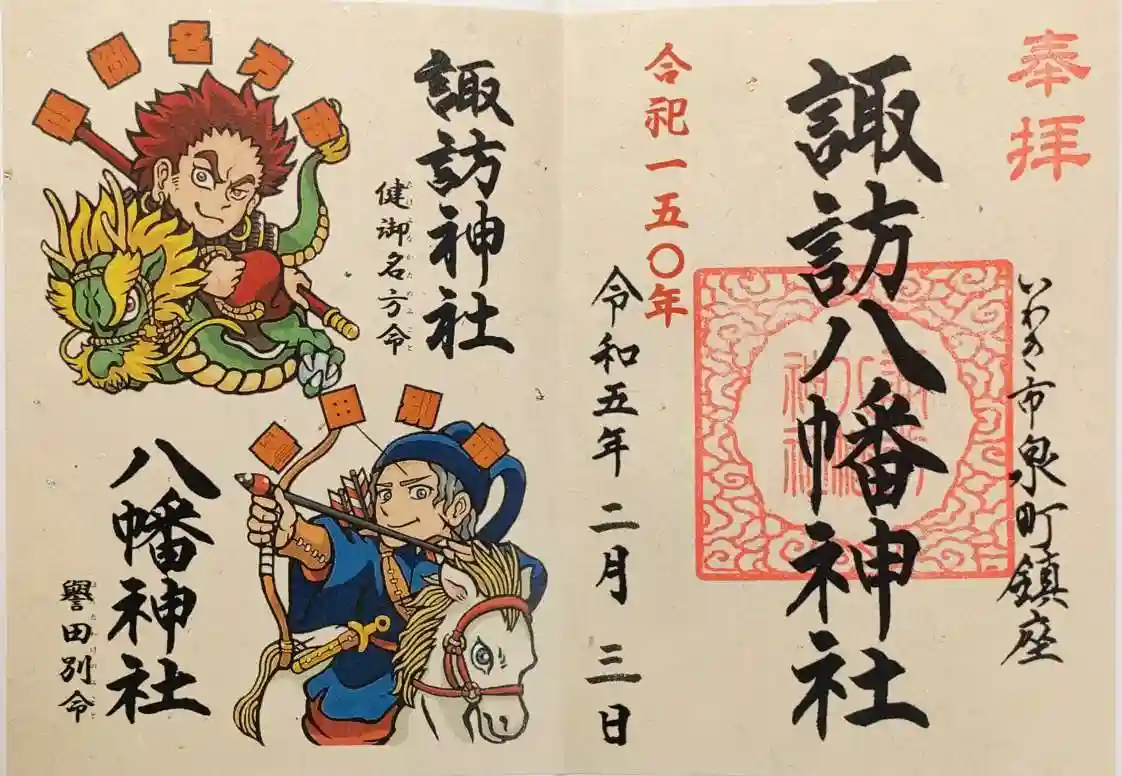 奉拝
いわき市泉町鎮座
諏訪八幡神社
合祀一五〇年
令和五年二月三日
諏訪神社
健御名方命
八幡神社
譽田別命